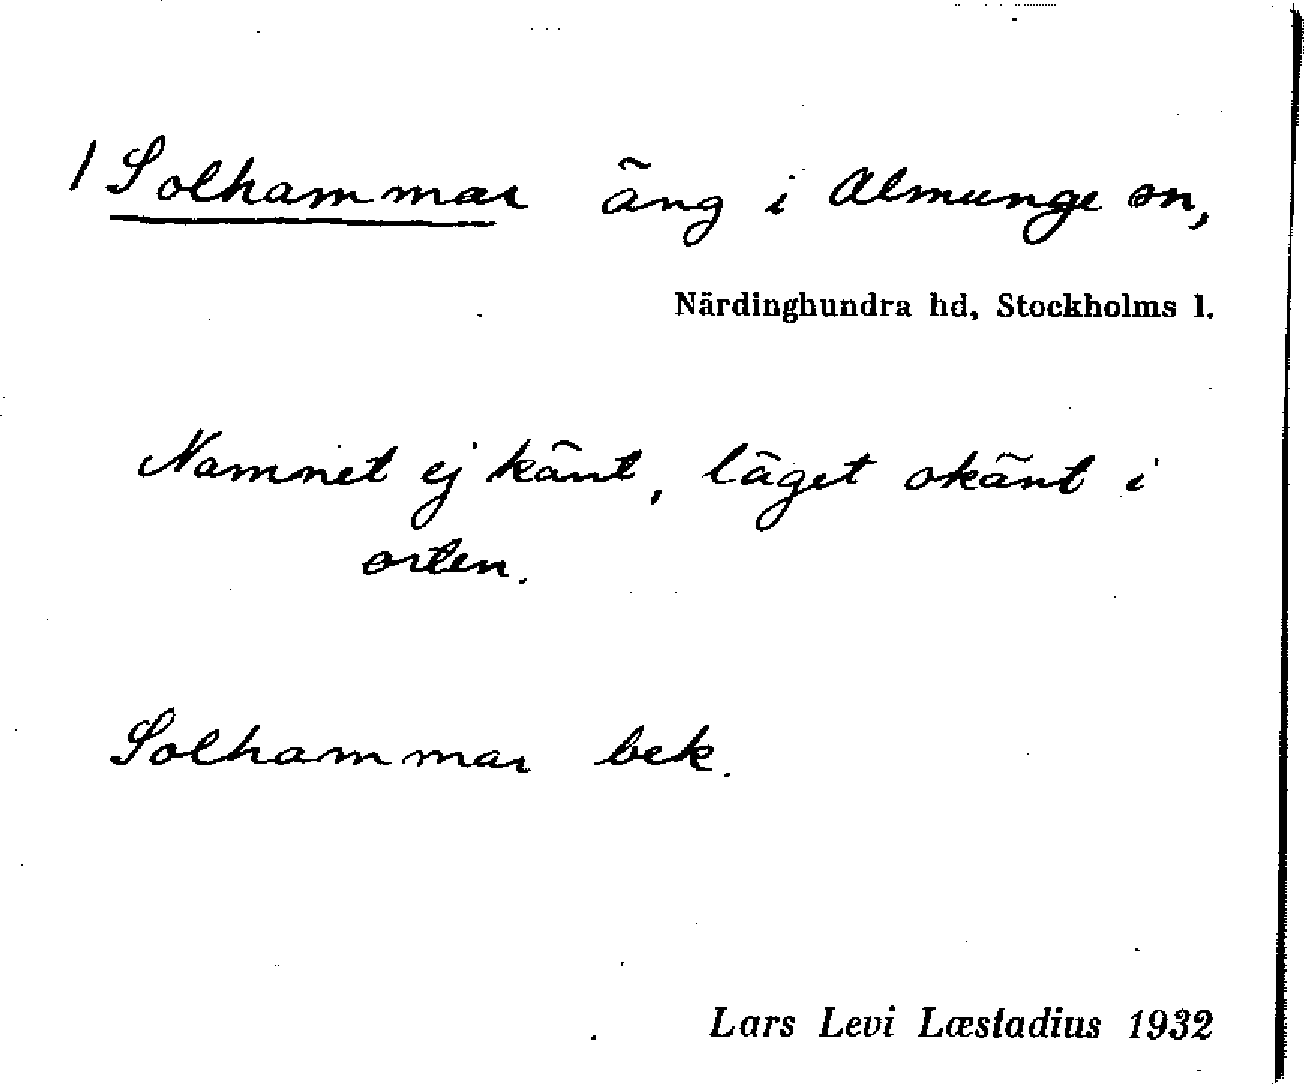 / Solhammar äng i Almunge sn,
Närdinghundra hd, Stockholms l.
Namnet ej känt, läget okänt i
orten.
Solhammar bek.
Lars Levi Læstadius 1932